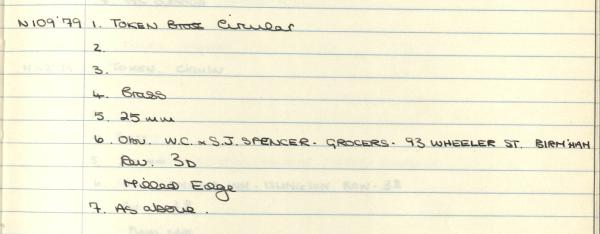 N109'79 1. TOKEN Brass Circular
2.
3.
4. Brass
5. 25 mm
6. Obv. W.C. & S.J. SPENCER. GROCERS. 93 WHEELER ST. BIRM'HAM
Rev. 3D
Milled Edge
7. As above.